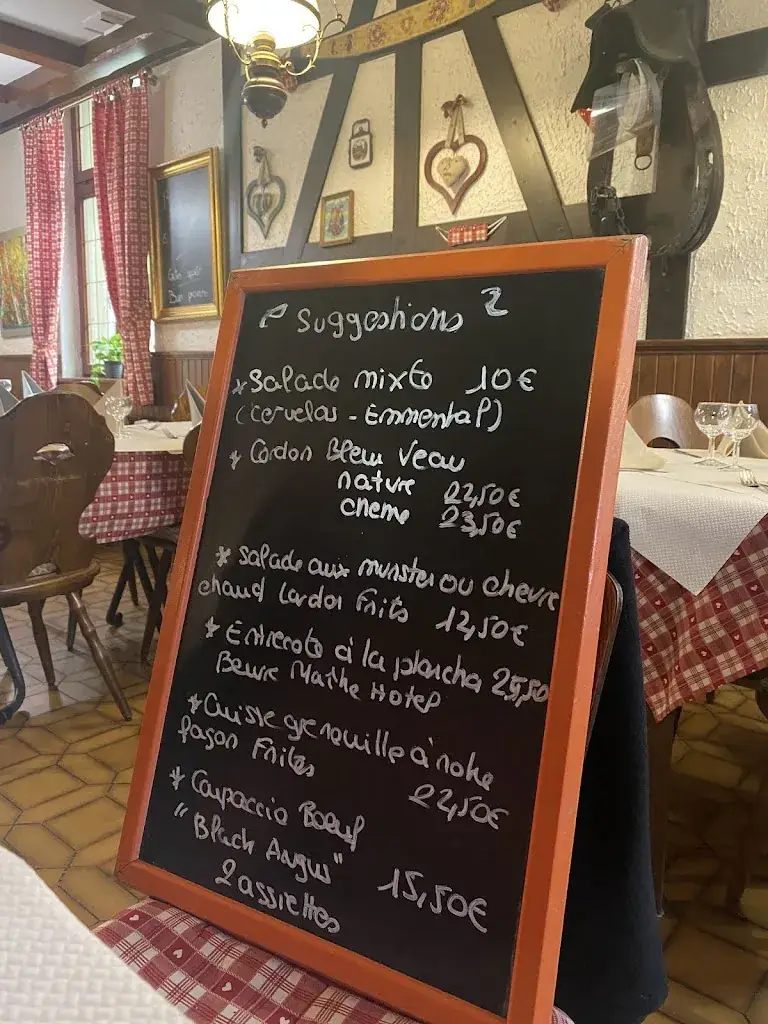 Suggestions
* Salade mixte 10€
(Cervelas - Emmental)
* Cordon Bleu Veau
nature 22,50€
creme 23,50€
* Salade aux munster ou chevre
chaud Lardon Frits 12,50€
* Entrecote à la plancha 25,50
Beurre Maitre Hotel
* Cuisse grenouille à notre
façon Frites
22,50€
* Carpaccio Boeuf
"Black Angus"
15,50€
2 assiettes